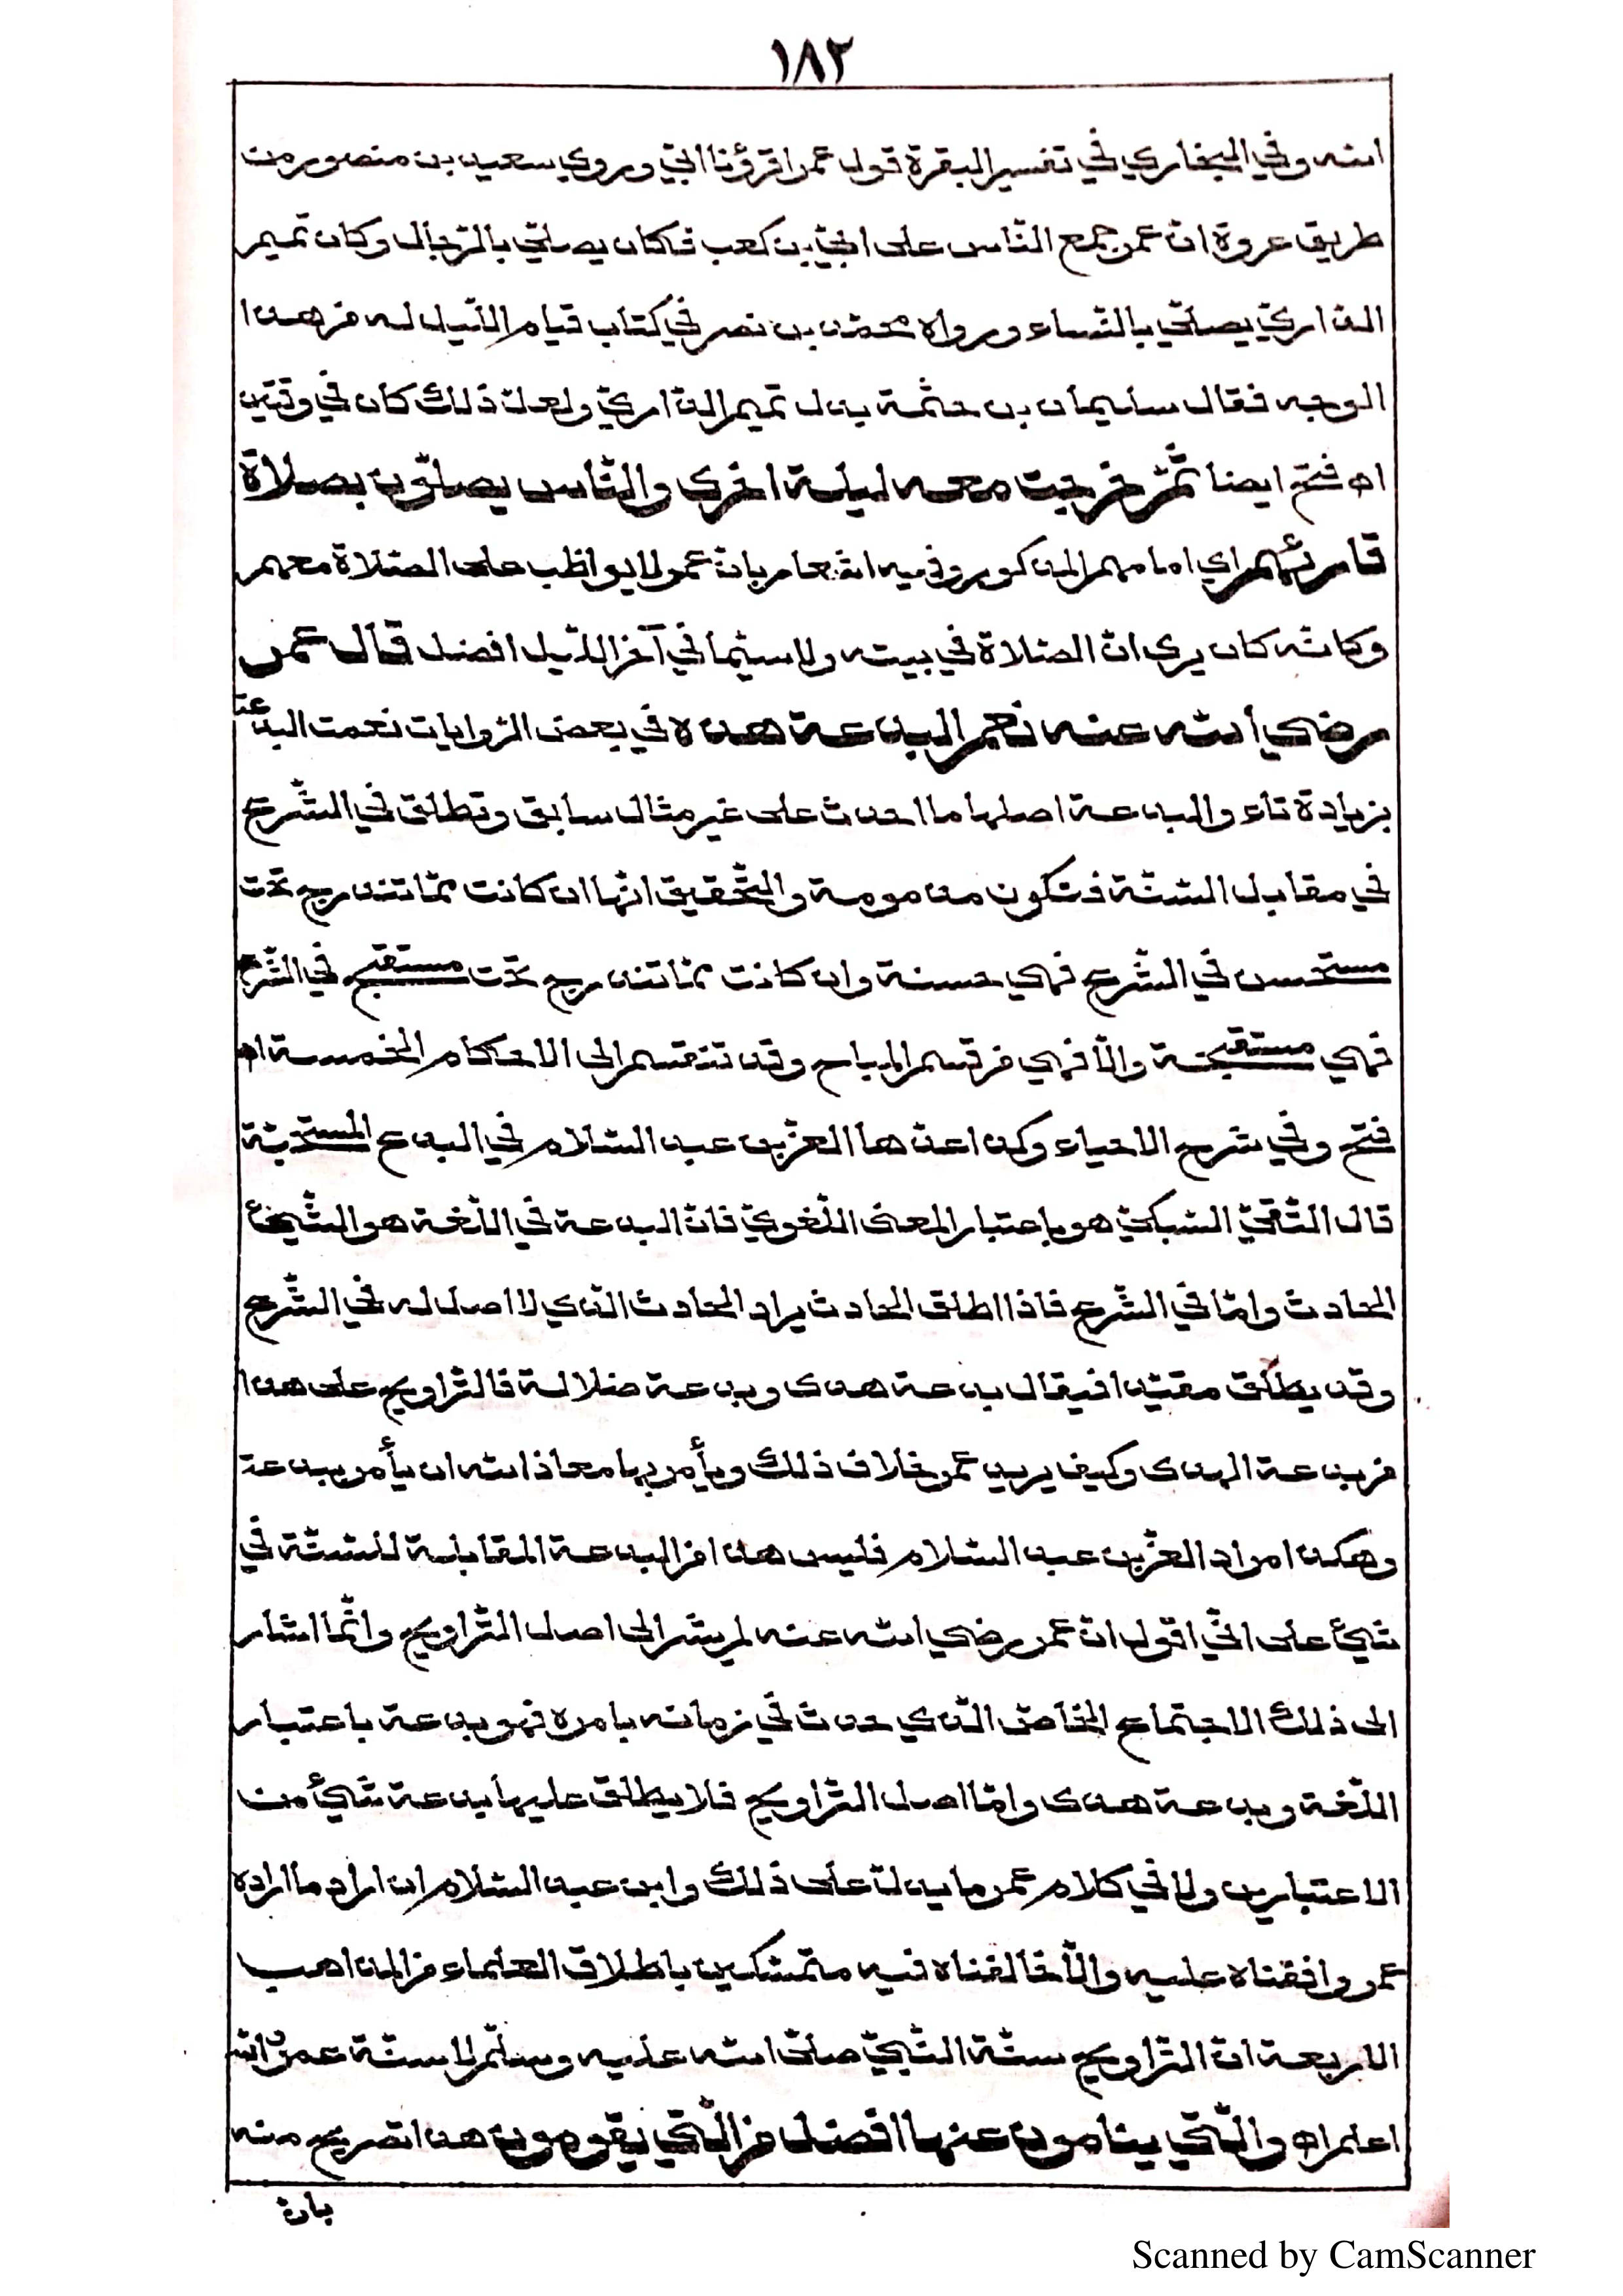 ١٨٢
الله وفي البخاري في تفسير البقرة قول عمر اقرؤنا ابي وروي سعيد بن منصور من
طريق عروة ان عمر جمع الناس على ابيّ بن كعب فكان يصلّي بالرّجال وكان تميم
الداريّ يصلّي بالنّساء ورواه محمّد بن نصر في كتاب قيام اللّيل له من هذا
الوجه فقال سليمان بن حثمة بدل تميم الداريّ ولعلّ ذلك كان في وقتين
اه فتح ايضا ثمّ خرجت معه ليلة اخرى والنّاس يصلّون بصلاة
قارئهم اي امامهم المذكور وفيه اشعار بانّ عمر لا يواظب على الصّلاة معهم
وكانّه كان يرى انّ الصّلاة في بيته ولا سيّما في آخر اللّيل افضل قال عمر
رضي الله عنه نعم البدعة هذه في بعض الرّوايات نعمت البدعة
بزيادة تاء والبدعة اصلها ما احدث على غير مثال سابق وتطلق في الشّرع
في مقابل السّنّة فتكون مذمومة والتّحقيق انّها ان كانت ممّا تندرج تحت
مستحسن في الشّرع فهي حسنة وان كانت ممّا تندرج تحت مستقبح في الشّرع
فهي مستقبحة والّا فهي من قسم المباح وقد تنقسم الى الاحكام الخمسة اه
فتح وفي شرح الاحياء وكذا عدّها العزّ بن عبد السّلام في البدع المستحبّة
قال التّقيّ السّبكيّ هو باعتبار المعنى اللّغويّ فانّ البدعة في اللّغة هو الشّيئ
الحادث وامّا في الشّرع فاذا اطلق الحادث يراد الحادث الّذي لا اصل له في الشّرع
وقد يطلق مقيّدا فيقال بدعة هدى وبدعة ضلالة فالتّراويح على هذا
من بدعة الهدى وكيف يريد عمر خلاف ذلك ويأمر بها معاذ الله ان يأمر ببدعة
وهكذا مراد العزّ بن عبد السّلام فليس هذا من البدعة المقابلة للسّنّة في
شيئ على انّي اقول انّ عمر رضي الله عنه لم يشر الى اصل التّراويح وانّما اشار
الى ذلك الاجتماع الخاصّ الّذي حدث في زمانه بامره فهو بدعة باعتبار
اللّغة وبدعة هدى وامّا اصل التّراويح فلا يطلق عليها بدعة شيئ من
الاعتبارين ولا في كلام عمر ما يدلّ على ذلك وابن عبد السّلام ان اراد ما اراده
عمر وافقناه عليه والّا خالفناه فيه متمسّكين باطلاق العلماء من المذاهب
الاربعة انّ التّراويح سنّة النّبيّ صلّى الله عليه وسلّم لا سنّة عمر والله
اعلم اه والّتي ينامون عنها افضل من الّتي يقومون هذا تصريح منه
بانّ
Scanned by CamScanner